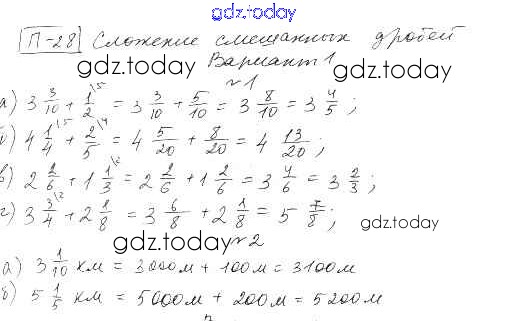 gdz.today
П-28 Сложение смешанных дробей
gdz.today Вариант 1
№1
а) 3 3/10 + 1/2 \5 = 3 3/10 + 5/10 = 3 8/10 = 3 4/5 ;
б) 4 1/4 \5 + 2/5 \4 = 4 5/20 + 8/20 = 4 13/20 ;
в) 2 2/6 + 1 1/3 \2 = 2 2/6 + 1 2/6 = 3 4/6 = 3 2/3 ;
г) 3 3/4 \2 + 2 1/8 = 3 6/8 + 2 1/8 = 5 7/8 ; gdz.today
gdz.today №2
а) 3 1/10 км = 3000м + 100м = 3100м
б) 5 1/5 км = 5000м + 200м = 5200м